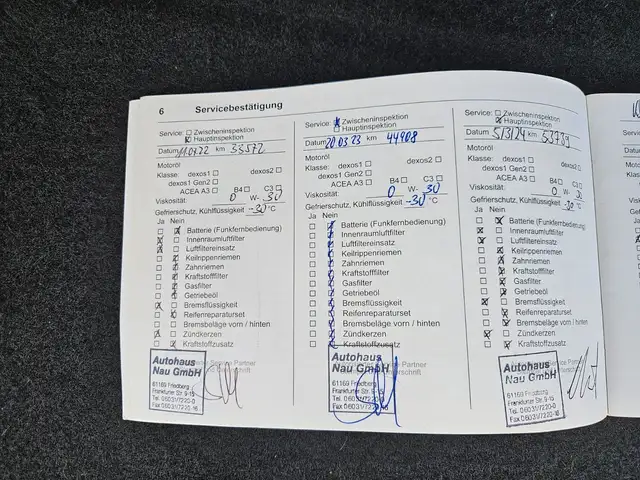 6 Servicebestätigung
Service: Zwischeninspektion
Hauptinspektion
Datum 11.03.22 km 33572
Motoröl
Klasse: dexos1 dexos2
dexos1 Gen2
ACEA A3 B4 C3
Viskosität: 0 W- 30
Gefrierschutz, Kühlflüssigkeit -30 °C
Ja Nein
Batterie (Funkfernbedienung)
Innenraumluftfilter
Luftfiltereinsatz
Keilrippenriemen
Zahnriemen
Kraftstofffilter
Gasfilter
Getriebeöl
Bremsflüssigkeit
Reifenreparaturset
Bremsbeläge vorn / hinten
Zündkerzen
Kraftstoffzusatz
Autohaus
Nau GmbH
61169 Friedberg
Frankfurter Str. 9-15
Tel. 06031/7220-0
Fax 06031/7220-16
Service: Zwischeninspektion
Hauptinspektion
Datum 20.03.23 km 44908
Motoröl
Klasse: dexos1 dexos2
dexos1 Gen2
ACEA A3 B4 C3
Viskosität: 0 W- 30
Gefrierschutz, Kühlflüssigkeit -30 °C
Ja Nein
Batterie (Funkfernbedienung)
Innenraumluftfilter
Luftfiltereinsatz
Keilrippenriemen
Zahnriemen
Kraftstofffilter
Gasfilter
Getriebeöl
Bremsflüssigkeit
Reifenreparaturset
Bremsbeläge vorn / hinten
Zündkerzen
Kraftstoffzusatz
Service Partner
Autohaus
Nau GmbH
61169 Friedberg
Frankfurter Str. 9-15
Tel. 06031/7220-0
Fax 06031/7220-16
Service: Zwischeninspektion
Hauptinspektion
Datum 5/3/24 km 53739
Motoröl
Klasse: dexos1 dexos2
dexos1 Gen2
ACEA A3 B4 C3
Viskosität: 0 W- 30
Gefrierschutz, Kühlflüssigkeit -30 °C
Ja Nein
Batterie (Funkfernbedienung)
Innenraumluftfilter
Luftfiltereinsatz
Keilrippenriemen
Zahnriemen
Kraftstofffilter
Gasfilter
Getriebeöl
Bremsflüssigkeit
Reifenreparaturset
Bremsbeläge vorn / hinten
Zündkerzen
Kraftstoffzusatz
Autohaus
Nau GmbH
61169 Friedberg
Frankfurter Str. 9-15
Tel. 06031/7220-0
Fax 06031/7220-16